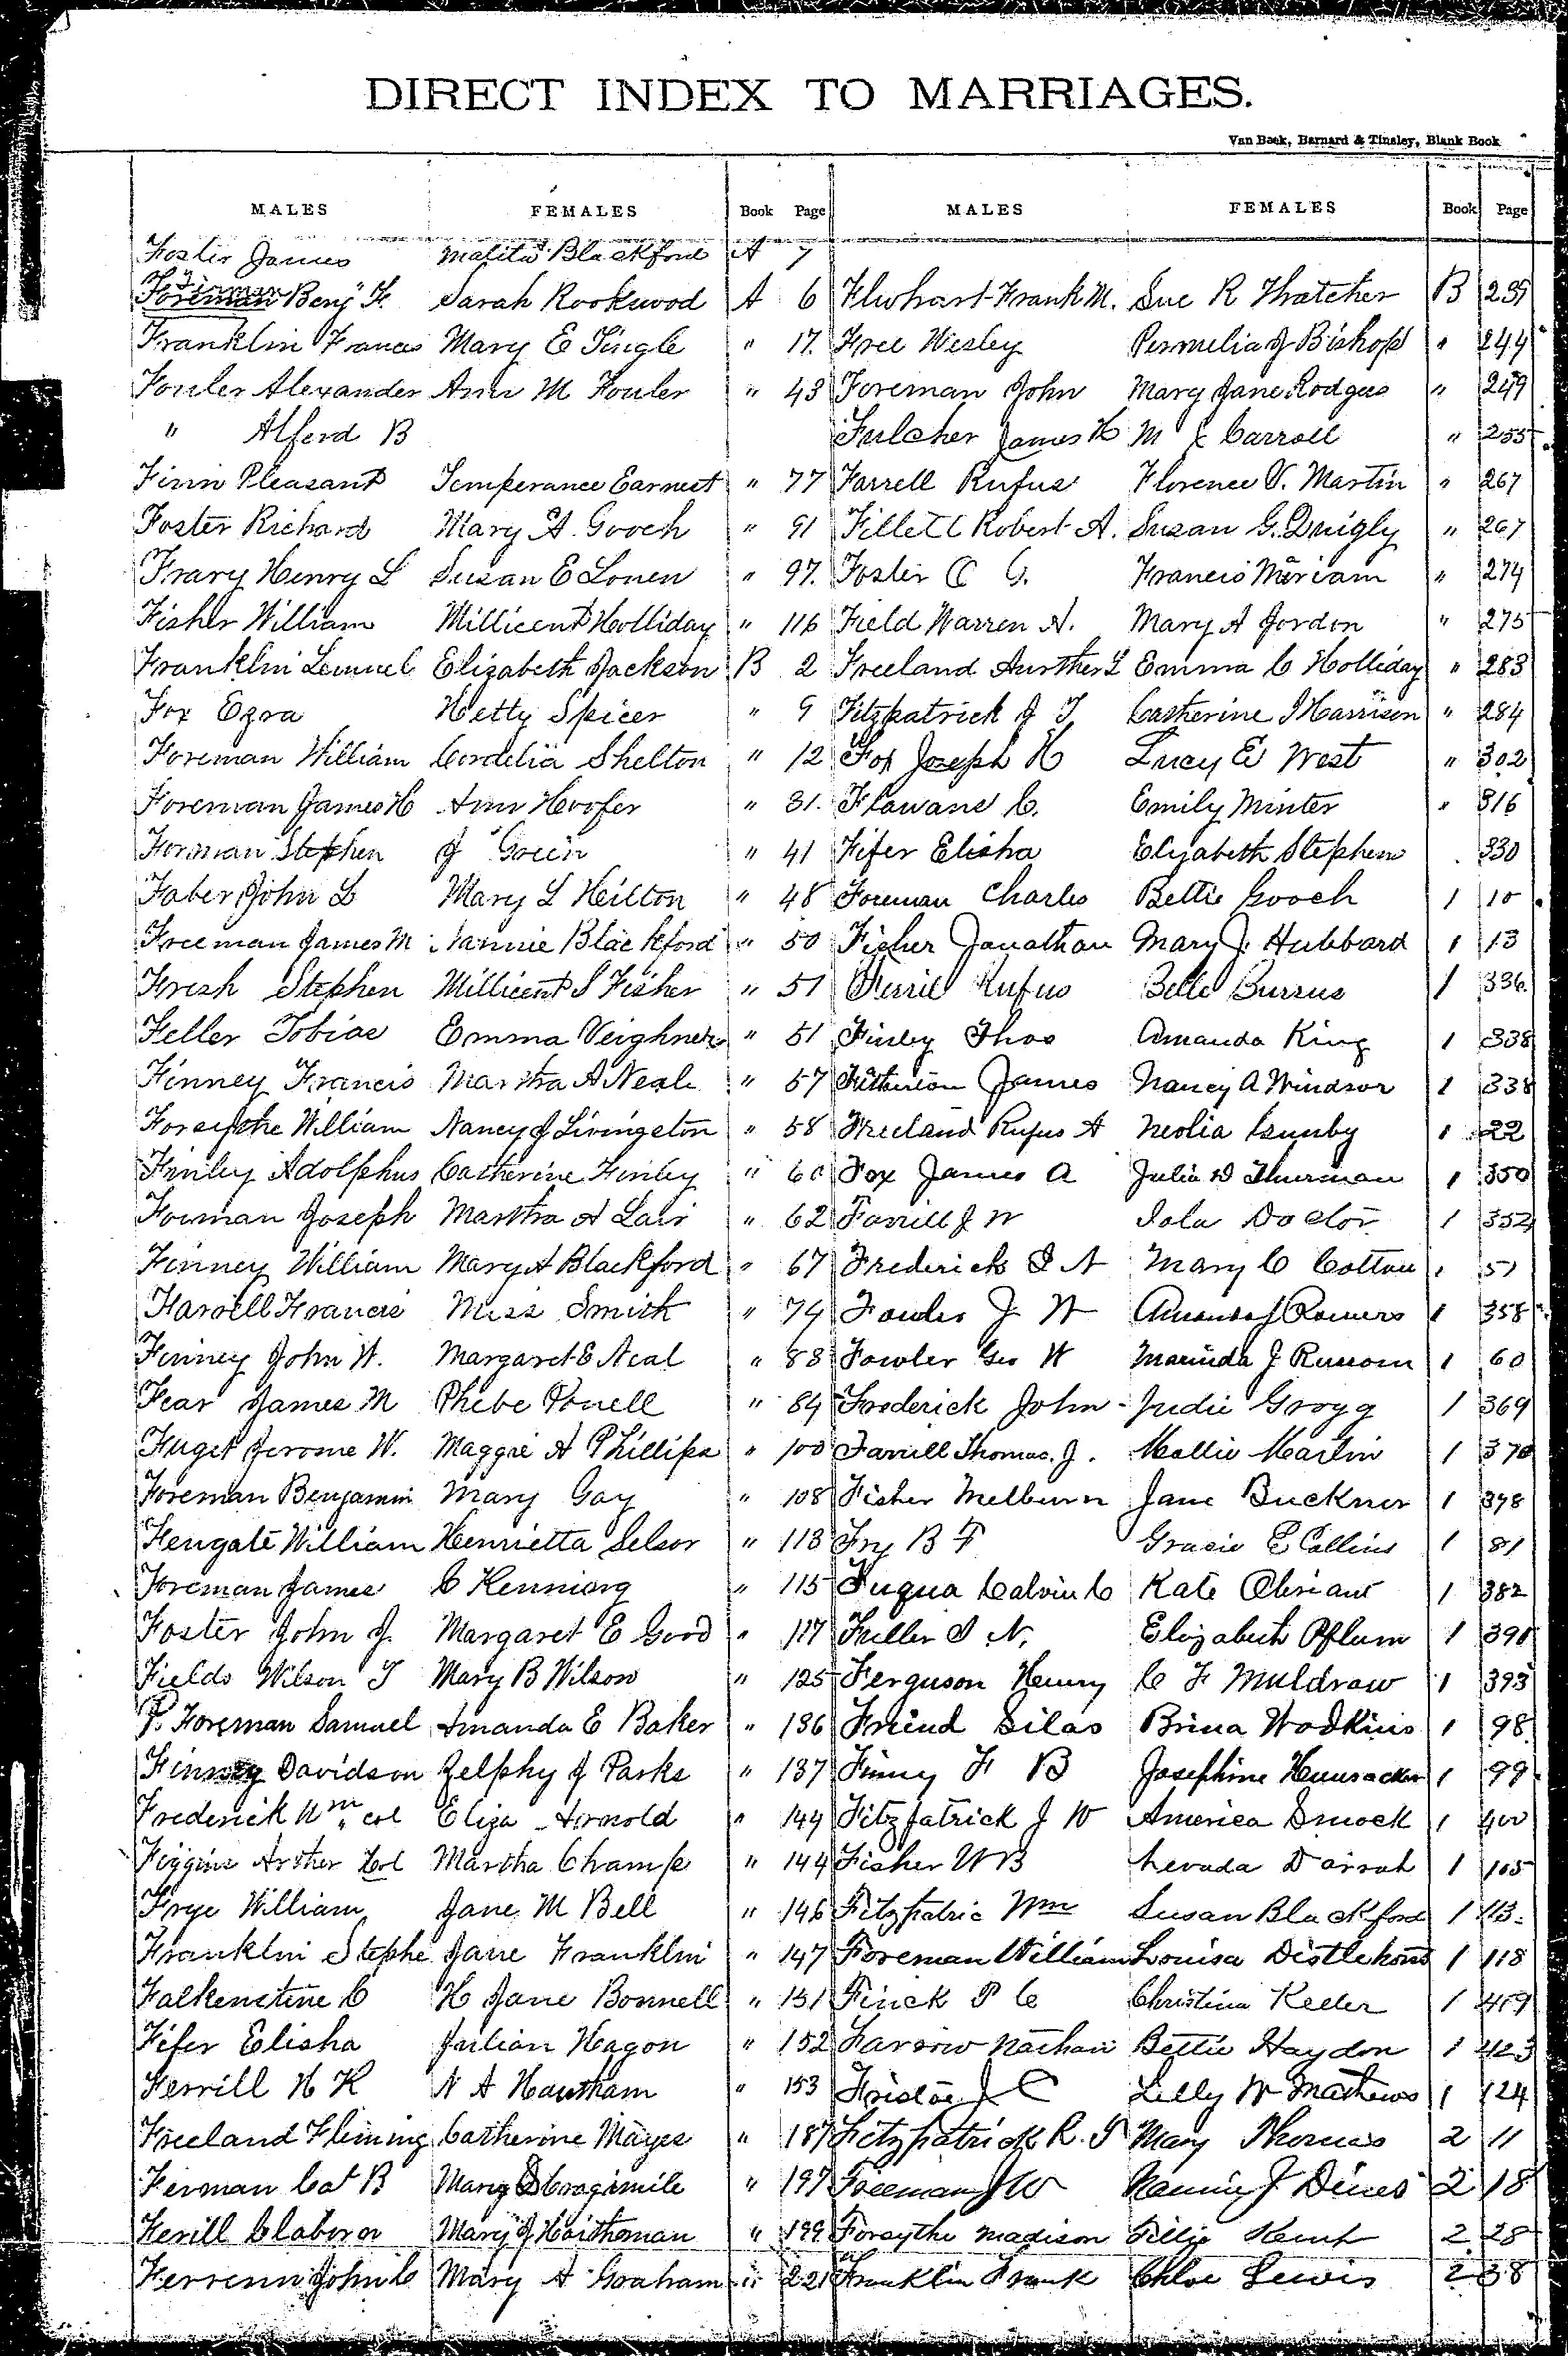 DIRECT INDEX TO MARRIAGES.
Van Beek, Barnard & Tinsley, Blank Book
MALES FEMALES Book Page MALES FEMALES Book Page
Foster James Blackford A 7
Firman Foreman Benj F. Sarah Rookwood A 6
Franklin Frances Mary E Tingle " 17.
Fouler Alexander Ann M Fouler " 43
" Alferd B
Finn Pleasant Temperance Earnest " 77
Foster Richard Mary A. Gooch " 91
Frary Henry L Susan E Louen " 97.
Fisher William Millicent Holliday " 116
Franklin Lemuel Elizabeth Jackson B 2
Fox Ezra Hetty Spicer " 9
Foreman William Cordelia Shelton " 12
Foreman James H Ann Hoofer " 31.
Forman Stephen J Green " 41
Faber John L Mary L Heilton " 48
Freeman James M Nannie Blackford " 50
Fresh Stephen Millicent S Fisher " 51
Feller Tobias Emma Veighner " 51
Finney Francis Martha A Neale " 57
Forsythe William Nancy J Livingston " 58
Finley Adolphus Catherine Finley " 60
Forman Joseph Martha A Lair " 62
Finney William Mary A Blackford " 67
Farrell Francis Miss Smith " 74
Finney John W. Margaret E Neal " 83
Fear James M Phebe Powell " 84
Fuget Jerome W. Maggie A Phillips " 100
Foreman Benjamin Mary Gay " 108
Fengate William Henrietta Selsor " 113
Foreman James C Henniarg " 115
Foster John J. Margaret E Good " 117
Fields Wilson T Mary B Wilson " 125
P. Foreman Samuel Amanda E Baker " 136
Finney Davidson Zelphy J Parks " 137
Frederick Wm. col Eliza Arnold " 144
Figgins Arther Col Martha Champ " 144
Frye William Jane M Bell " 146
Franklin Stephe Jane Franklin " 147
Falkenstine C H Jane Bonnell " 151
Fifer Elisha Julian Hagon " 152
Ferrill H K N A Hautham " 153
Freeland Fleming Catherine Mayes " 187
Firman Cat B Mary Cragimile " 197
Ferill Claborn Mary J Haithoman " 199
Ferrenn John C Mary A Graham " 221
Flwhart Frank M. Sue R Thatcher B 239
Free Wesley Permelia J Bishop " 244
Foreman John Mary Jane Rodgers " 249
Fulcher James H M J Carroll " 255
Farrell Rufus Florence V. Martin " 267
Fillett Robert A. Susan G. Quigly " 267
Foster C G. Francis Miriam " 274
Field Warren A. Mary A Jordon " 275
Freeland Aurther L Emma C Holliday " 283
Fitzpatrick J T Catherine J Harrison " 284
Fox Joseph H Lucy E West " 302
Flawane C. Emily Minter " 316
Fifer Elisha Elizabeth Stephens 330
Foreman Charles Bettie Gooch 1 10
Fisher Jonathan Mary J. Hubbard 1 13
Ferril Rufus Belle Burrus 1 336.
Finley Thos Amanda King 1 338
James Nancy A Windsor 1 338
Freeland Rufus A Neolia Gumby 1 22
Fox James A Julia D Thurman 1 350
Farrill J W Iola Doctor 1 352
Frederick S N Mary C Cotton 1 51
Fouler J W Amanda J Romers 1 358
Fowler Geo W Marinda J Russom 1 60
Frederick John Judie Grogg 1 369
Farrill Thomas. J. Mollie Martin 1 370
Fisher Melburn Jane Buckner 1 378
Fry B F Gracie E Collins 1 81
Fuqua Calvin C Kate 1 382
Fuller S N. Elizabeth Pflum 1 391
Ferguson Henry C F Muldraw 1 393
Friend Silas Brina Hodkins 1 98
Finny F B Josephine Hunsacker 1 99
Fitzpatrick J W America Smock 1 400
Fisher W B Nevada Darrah 1 105
Fitzpatric Wm Susan Blackford 1 113.
Foreman William Louisa Distlehorst 1 118
Finck P C Christina Keller 1 419
Farrow Nathan Bettie Haydon 1 423
Fristoe J C Lilly W Mathews 1 124
Fitzpatrick R. T Mary Thomas 2 11
Freeman J W Nannie J Dines 2 18
Forsythe Madison Tillie Kent 2 28
Franklin Frank Chloe Lewis 2 38